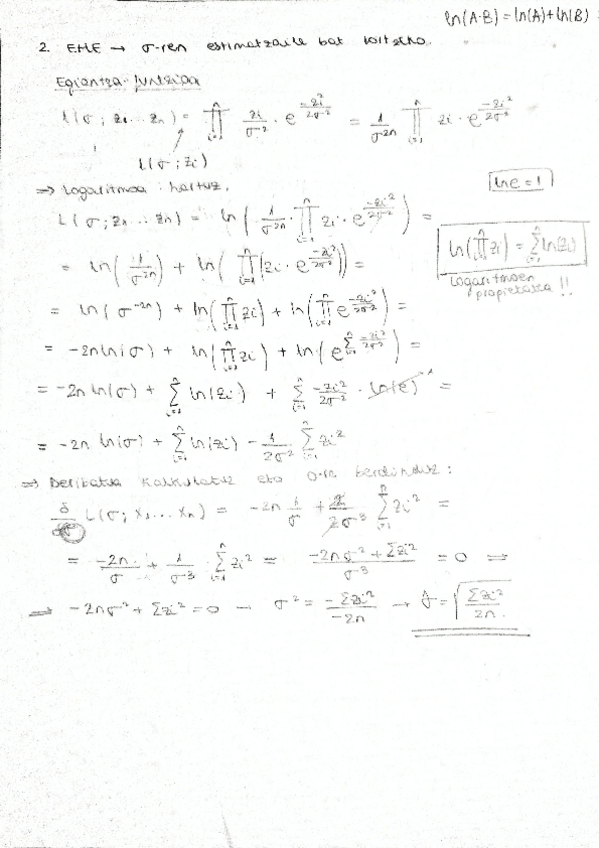 ln(A·B) = ln(A)+ln(B)
2. EHE → σ-ren estimatzaile bat lortzeko.
Egiantza-funtzioa
l(σ; z₁...zₙ) = ∏ᵢ₌₁ⁿ zᵢ/σ² · e^(-zᵢ²/2σ²) = 1/σ²ⁿ ∏ᵢ₌₁ⁿ zᵢ · e^(-zᵢ²/2σ²)
l(σ; zᵢ)
⇒ Logaritmoa hartuz,
ln e = 1
L(σ; z₁...zₙ) = ln( 1/σ²ⁿ · ∏ᵢ₌₁ⁿ zᵢ · e^(-zᵢ²/2σ²) ) =
ln(∏ᵢ₌₁ⁿ zᵢ) = ∑ᵢ₌₁ⁿ ln(zᵢ)
Logaritmoen
propietatea !!
= ln(1/σ²ⁿ) + ln( ∏ᵢ₌₁ⁿ (zᵢ · e^(-zᵢ²/2σ²)) ) =
= ln(σ⁻²ⁿ) + ln(∏ᵢ₌₁ⁿ zᵢ) + ln(∏ᵢ₌₁ⁿ e^(-zᵢ²/2σ²)) =
= -2n ln(σ) + ln(∏ᵢ₌₁ⁿ zᵢ) + ln(e^(∑ᵢ₌₁ⁿ -zᵢ²/2σ²)) =
= -2n ln(σ) + ∑ᵢ₌₁ⁿ ln(zᵢ) + ∑ᵢ₌₁ⁿ -zᵢ²/2σ² · ln(e) ¹ =
= -2n ln(σ) + ∑ᵢ₌₁ⁿ ln(zᵢ) - 1/2σ² ∑ᵢ₌₁ⁿ zᵢ²
⇒ Deribatua kalkulatuz eta 0-ra berdinduz :
δ/δσ L(σ; x₁...xₙ) = -2n 1/σ + 2/2σ³ ∑ᵢ₌₁ⁿ zᵢ² =
= -2n/σ + 1/σ³ · ∑ᵢ₌₁ⁿ zᵢ² = (-2nσ² + ∑zᵢ²)/σ³ = 0 ⇒
⇒ -2nσ² + ∑zᵢ² = 0 → σ² = -∑zᵢ²/-2n → σ̂ = √(∑zᵢ²/2n).